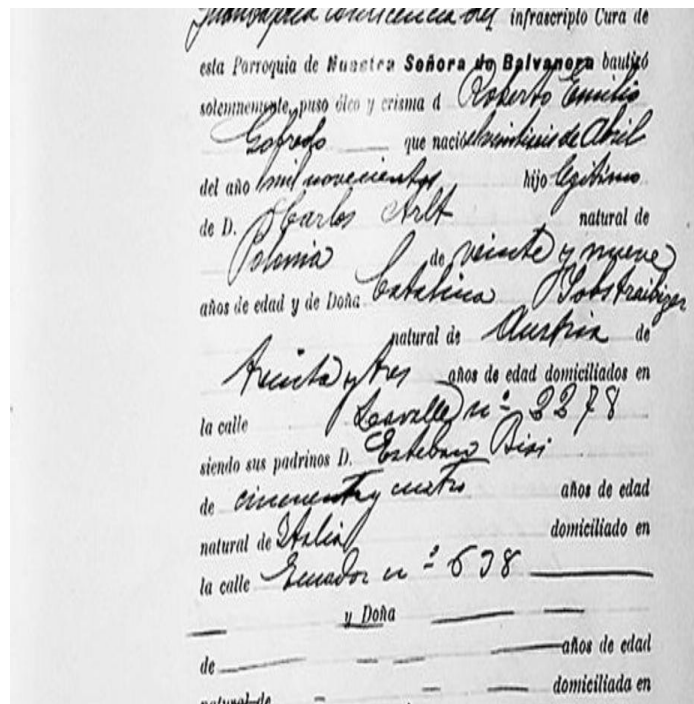 con licencia del infrascripto Cura de
esta Parroquia de Nuestra Señora de Balvanera bautizó
solemnemente, puso óleo y crisma á Roberto Emilio
Gofredo que nació el veintiseis de Abril
del año mil novecientos hijo legítimo
de D. Carlos Arlt natural de
Polonia de veinte y nueve
años de edad y de Doña Catalina Iobstraibizer
natural de Austria de
treinta y tres años de edad domiciliados en
la calle Lavalle nº 2278
siendo sus padrinos D. Esteban Bisi
de cincuenta y cuatro años de edad
natural de Italia domiciliado en
la calle Ecuador nº 638
y Doña
de años de edad
natural de domiciliada en